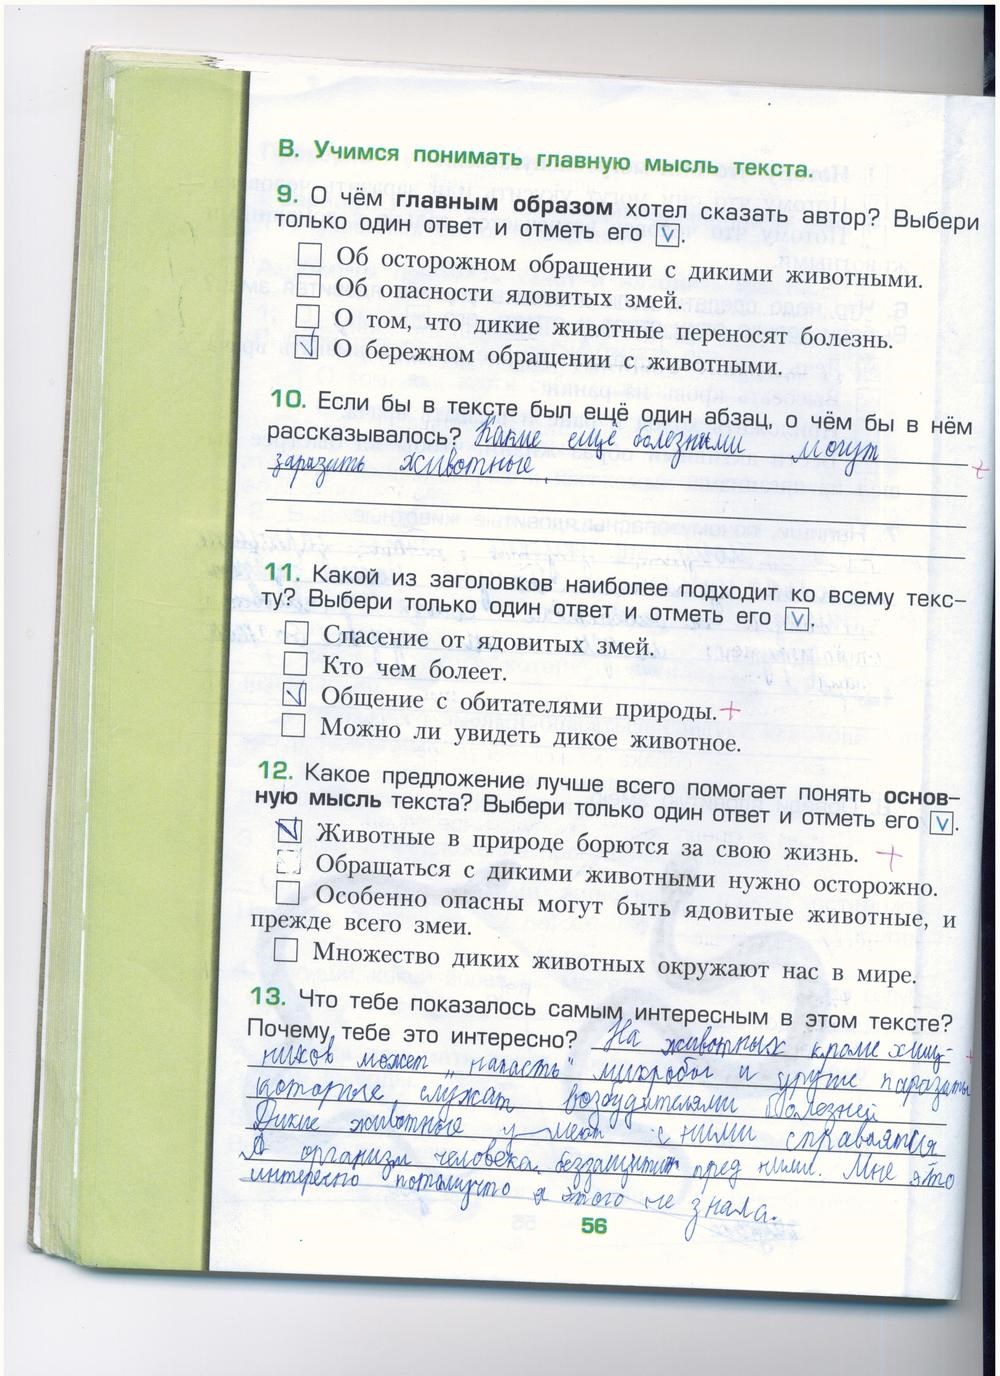 В. Учимся понимать главную мысль текста.
9. О чём главным образом хотел сказать автор? Выбери
только один ответ и отметь его v.
Об осторожном обращении с дикими животными.
Об опасности ядовитых змей.
О том, что дикие животные переносят болезнь.
О бережном обращении с животными.
10. Если бы в тексте был ещё один абзац, о чём бы в нём
рассказывалось? Какие ещё болезнями могут
заразить животные.
11. Какой из заголовков наиболее подходит ко всему текс-
ту? Выбери только один ответ и отметь его v.
Спасение от ядовитых змей.
Кто чем болеет.
Общение с обитателями природы. +
Можно ли увидеть дикое животное.
12. Какое предложение лучше всего помогает понять основ-
ную мысль текста? Выбери только один ответ и отметь его v.
Животные в природе борются за свою жизнь. +
Обращаться с дикими животными нужно осторожно.
Особенно опасны могут быть ядовитые животные, и
прежде всего змеи.
Множество диких животных окружают нас в мире.
13. Что тебе показалось самым интересным в этом тексте?
Почему тебе это интересно? На животных кроме хищ-
ников может „напасть“ микробы и другие паразиты
которые служат возбудителями болезней
Дикие животные умеют с ними справляться
А организм человека беззащитен пред ними. Мне это
интересно потомучто я этого не знала.
56